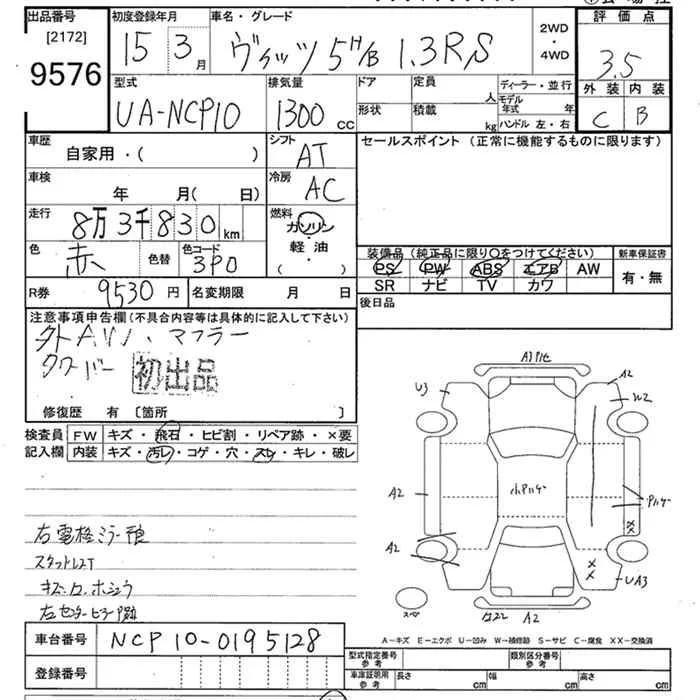 出品番号
[2172]
9576
初度登録年月
15 3月
車名・グレード
ヴィッツ 5H/B 1.3RS
2WD
・
4WD
評価点
3.5
外装 内装
C B
型式
UA-NCP10
排気量
1300 cc
ドア
形状
定員 人
積載 kg
ディーラー・並行
モデル年式 年
ハンドル 左・右
車歴
自家用・( )
シフト
AT
セールスポイント (正常に機能するものに限ります)
車検
年 月( 日)
冷房
AC
走行
8万3千830km
燃料
ガソリン
・
軽油
( )
色
赤
色替
色コード
3P0
装備品 (純正品に限り○をつけてください)
PS PW ABS エアB AW
SR ナビ TV カワ
新車保証書
有・無
R券 9530円
名変期限 月 日
後日品
注意事項申告欄(不具合内容等は具体的に記入して下さい)
外AW、マフラー
タワーバー
初出品
修復歴 有 〔箇所 〕
検査員記入欄
FW キズ・飛石・ヒビ割・リペア跡・×要
内装 キズ・汚レ・コゲ・穴・スレ・キレ・破レ
A3
U3
A2
W2
A2
A2
XX
XX
UA3
A2
スペア
右電格ミラー
スタットレスT
車台番号 NCP10-0195128
登録番号
A－キズ E－エクボ U－凹み W－補修跡 S－サビ C－腐食 XX－交換済
型式指定番号
参考
類別区分番号
参考
車庫証明用
参考
長さ cm
幅 cm
高さ cm